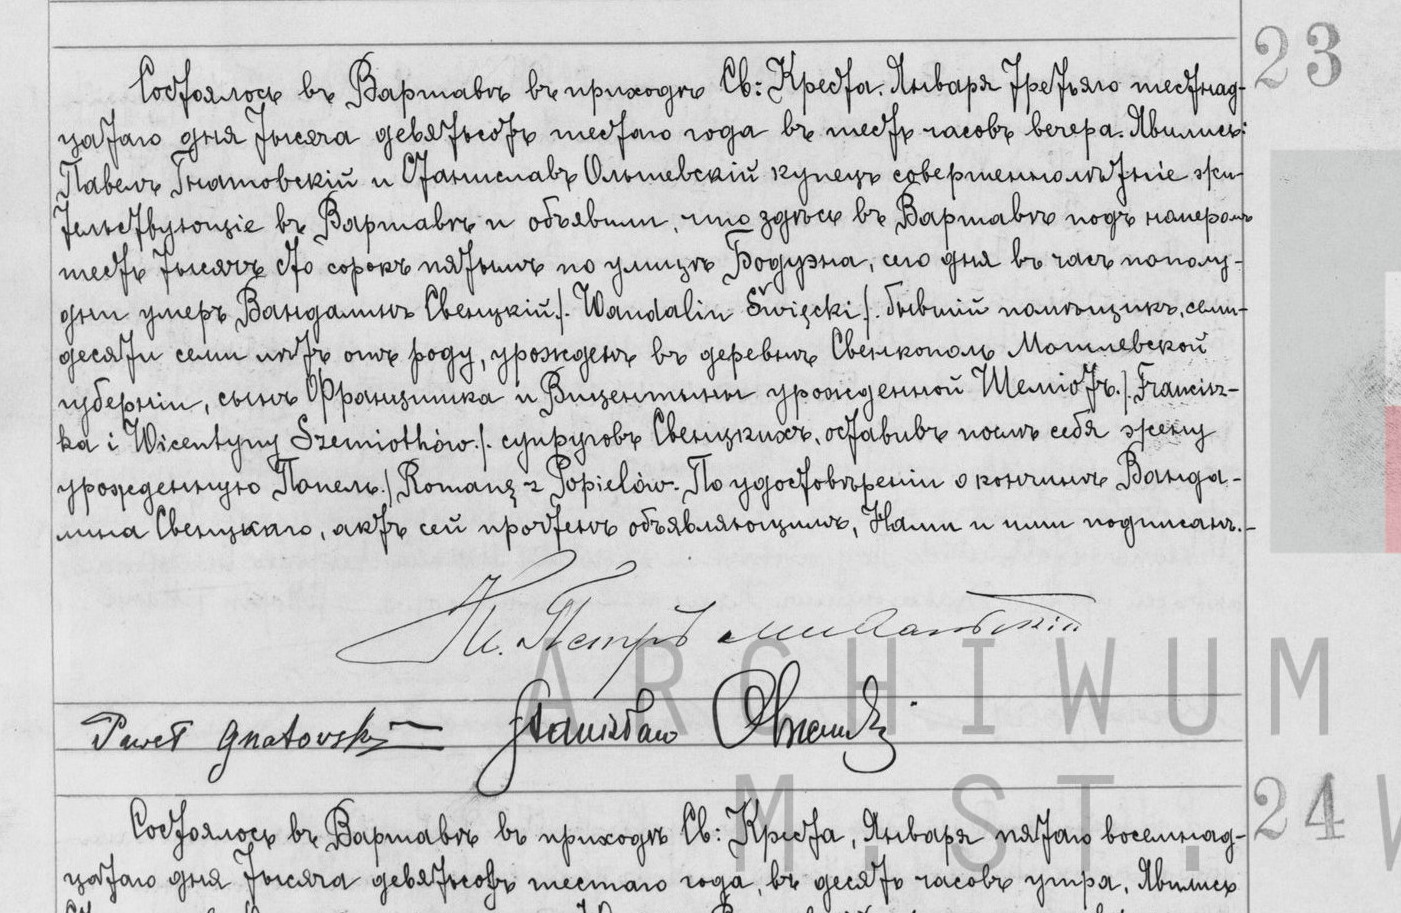 23
Состоялось въ Варшавѣ въ приходѣ Св: Креста. Января третьяго шестнад-
цатаго дня тысяча девятьсотъ шестаго года въ шесть часовъ вечера. Явились:
Павелъ Гнатовскій и Станиславъ Ольшевскій купецъ совершеннолѣтніе жи-
тельствующіе въ Варшавѣ и объявили, что здѣсь въ Варшавѣ подъ номеромъ
шесть тысячъ сто сорокъ пятымъ по улицѣ Бодуэна, сего дня въ часъ пополу-
дни умеръ Вандалинъ Свенцкій /. Wandalin Święcki /. бывшій помѣщикъ, семи-
десяти семи лѣтъ отъ роду, урожденъ въ деревнѣ Свенкополь Могилевской
губерніи, сынъ Францишка и Вицентыны урожденной Шеміотъ. /. Francisz-
ka i Wicentyny Szemiothów. /. супруговъ Свенцкихъ, оставивъ послѣ себя жену
урожденную Попель. /. Romanę z Popielów. По удостовѣреніи о кончинѣ Ванда-
лина Свенцкаго, актъ сей прочтенъ объявляющимъ, Нами и ими подписанъ. -
Петръ
Paweł Gnatowski Stanisław
ARCHIWUM
M. ST. W
24
Состоялось въ Варшавѣ въ приходѣ Св: Креста, Января пятаго восемнад-
цатаго дня тысяча девятьсотъ шестаго года, въ десять часовъ утра, Явились